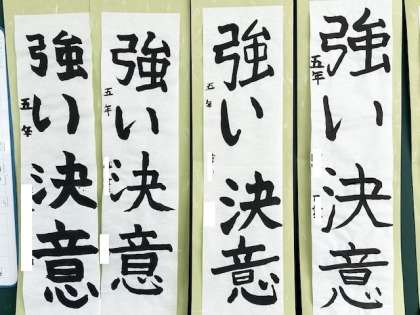 強い決意
五年
強い決意
五年
強い決意
五年
強い決意
五年